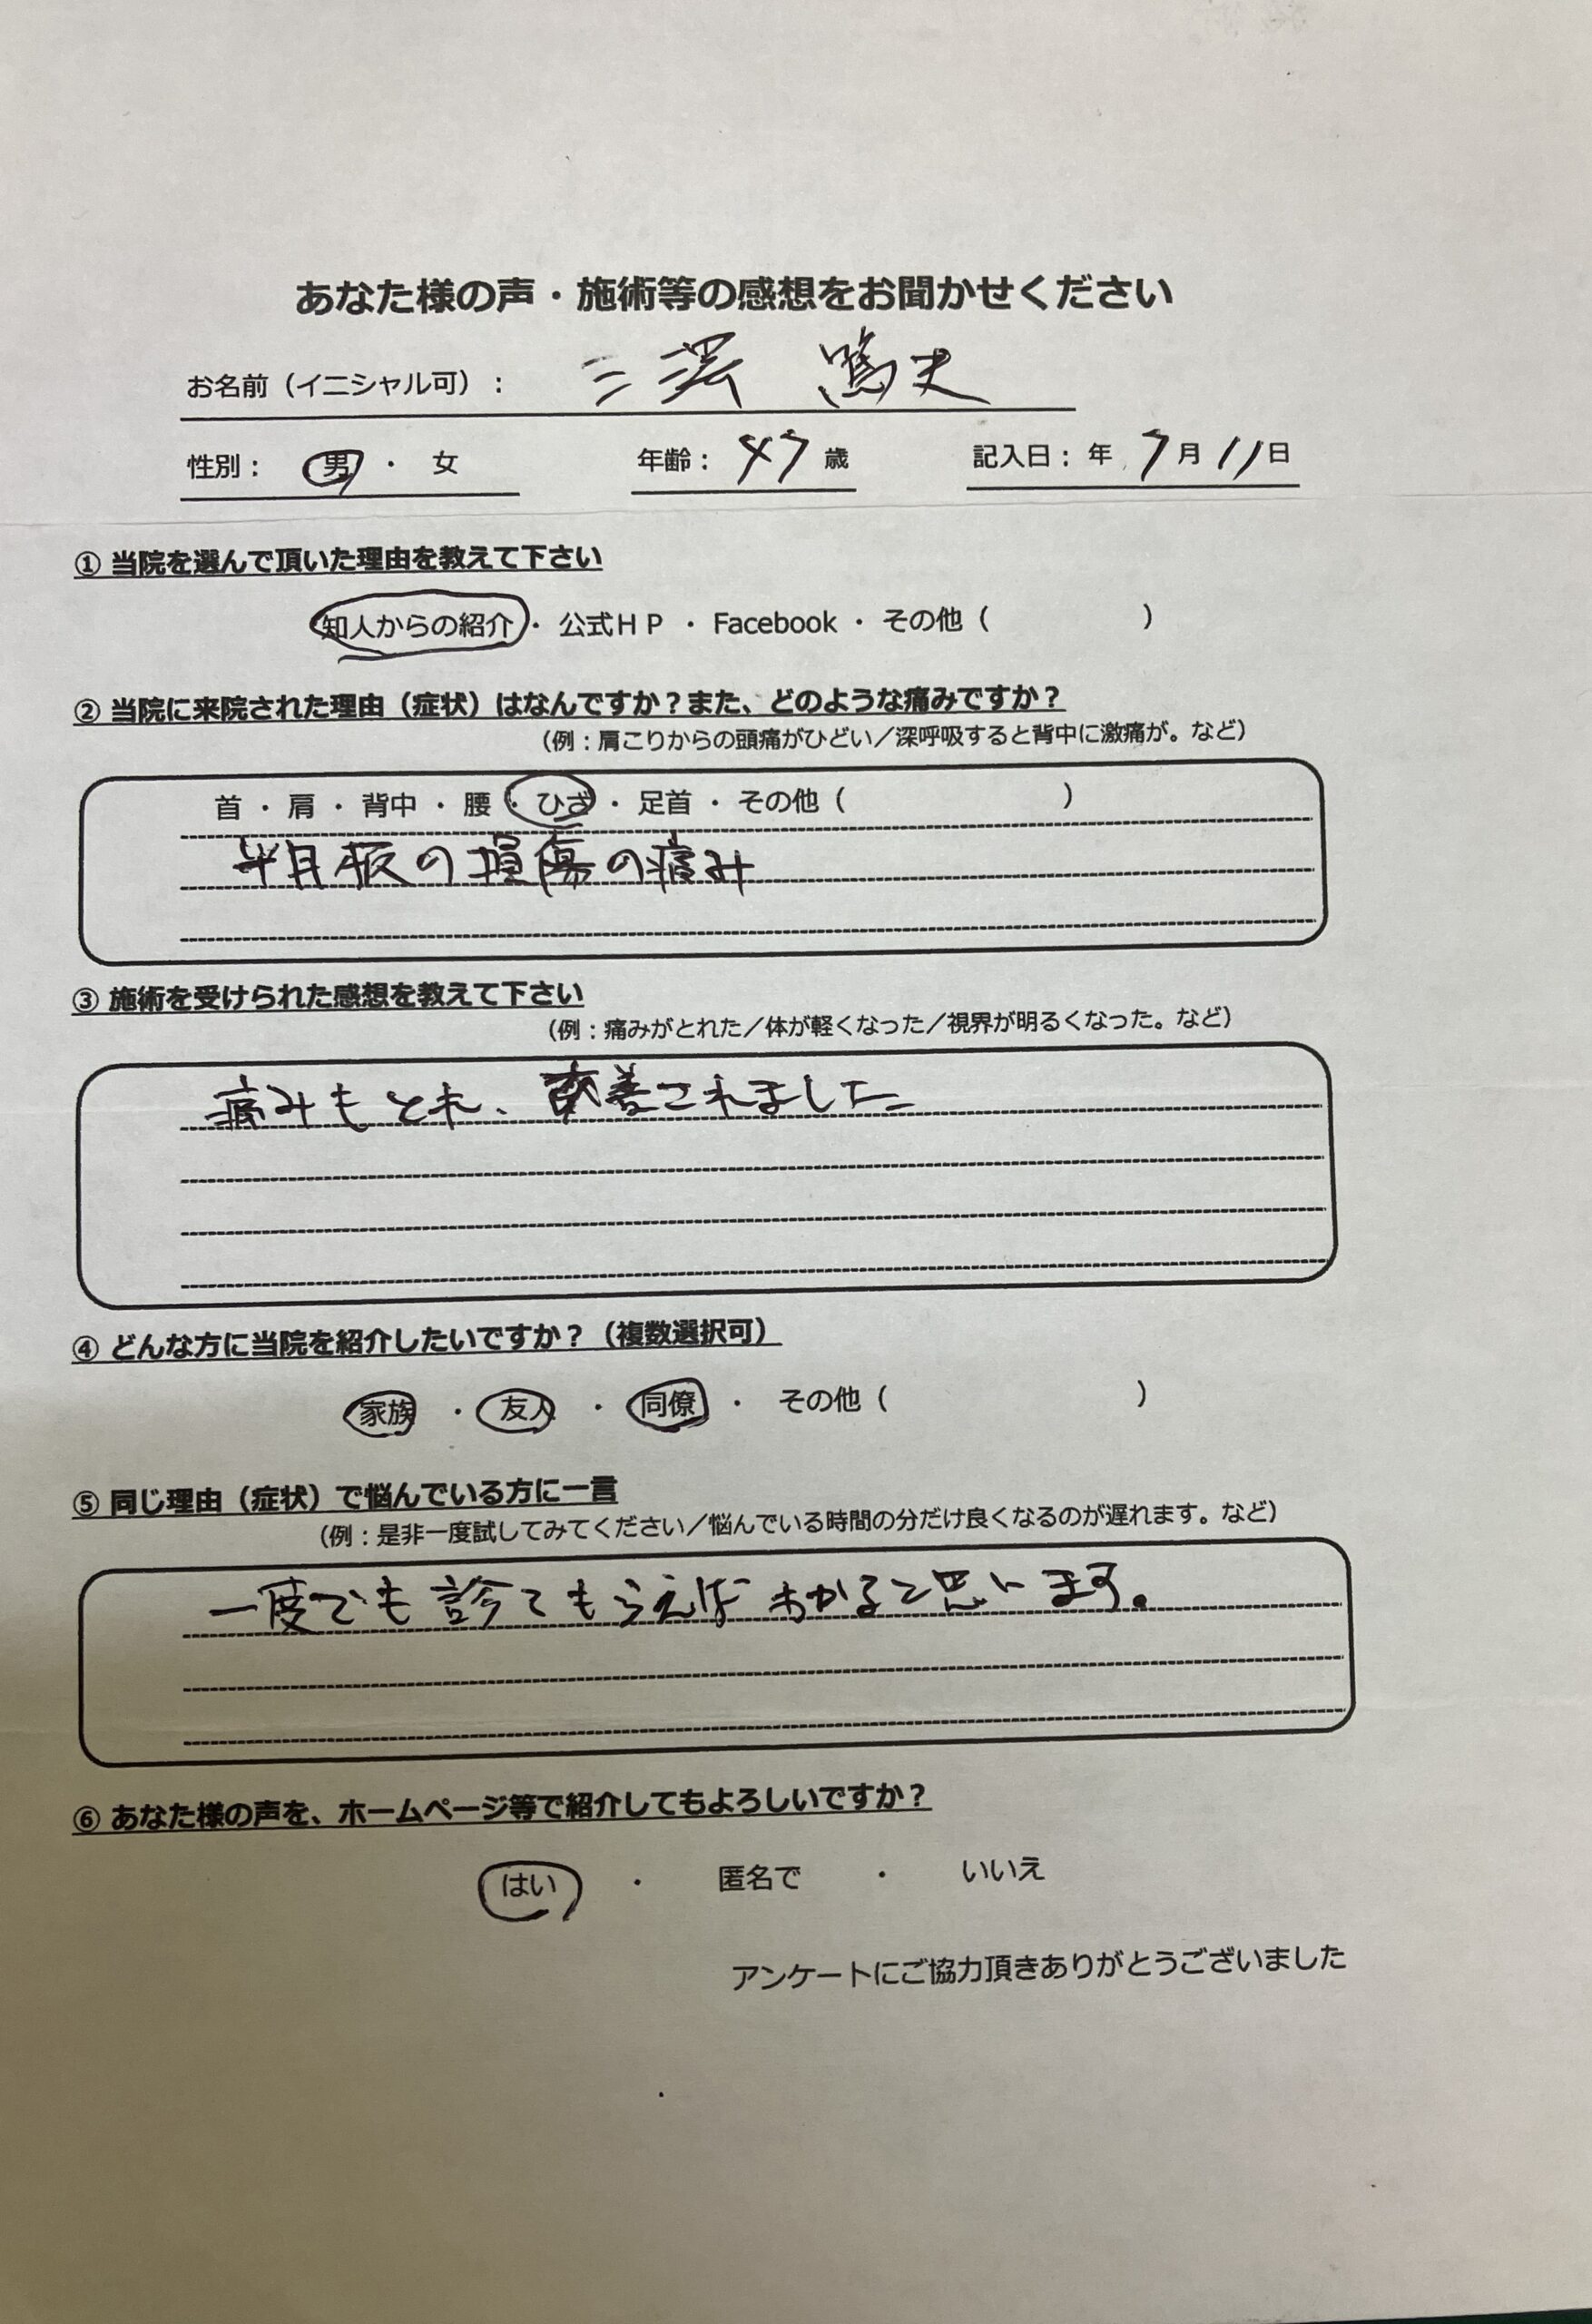 あなた様の声・施術等の感想をお聞かせください
お名前（イニシャル可）： 三澤 篤史
性別： 男 ・ 女 年齢： 47 歳 記入日： 年 7月 11日
① 当院を選んで頂いた理由を教えて下さい
知人からの紹介 ・ 公式ＨＰ ・ Facebook ・ その他（ ）
② 当院に来院された理由（症状）はなんですか？また、どのような痛みですか？
（例：肩こりからの頭痛がひどい／深呼吸すると背中に激痛が。など）
首 ・ 肩 ・ 背中 ・ 腰 ・ ひざ ・ 足首 ・ その他（ ）
半月板の損傷の痛み
③ 施術を受けられた感想を教えて下さい
（例：痛みがとれた／体が軽くなった／視界が明るくなった。など）
痛みもとれ、改善されました
④ どんな方に当院を紹介したいですか？（複数選択可）
家族 ・ 友人 ・ 同僚 ・ その他（ ）
⑤ 同じ理由（症状）で悩んでいる方に一言
（例：是非一度試してみてください／悩んでいる時間の分だけ良くなるのが遅れます。など）
一度でも診てもらえばわかると思います。
⑥ あなた様の声を、ホームページ等で紹介してもよろしいですか？
はい ・ 匿名で ・ いいえ
アンケートにご協力頂きありがとうございました